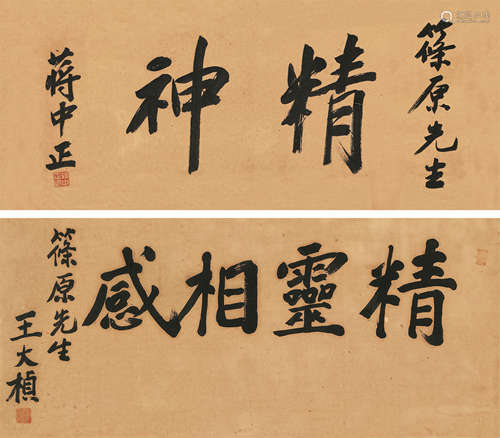 篠原先生
精神
蔣中正
精靈相感
篠原先生
王大楨